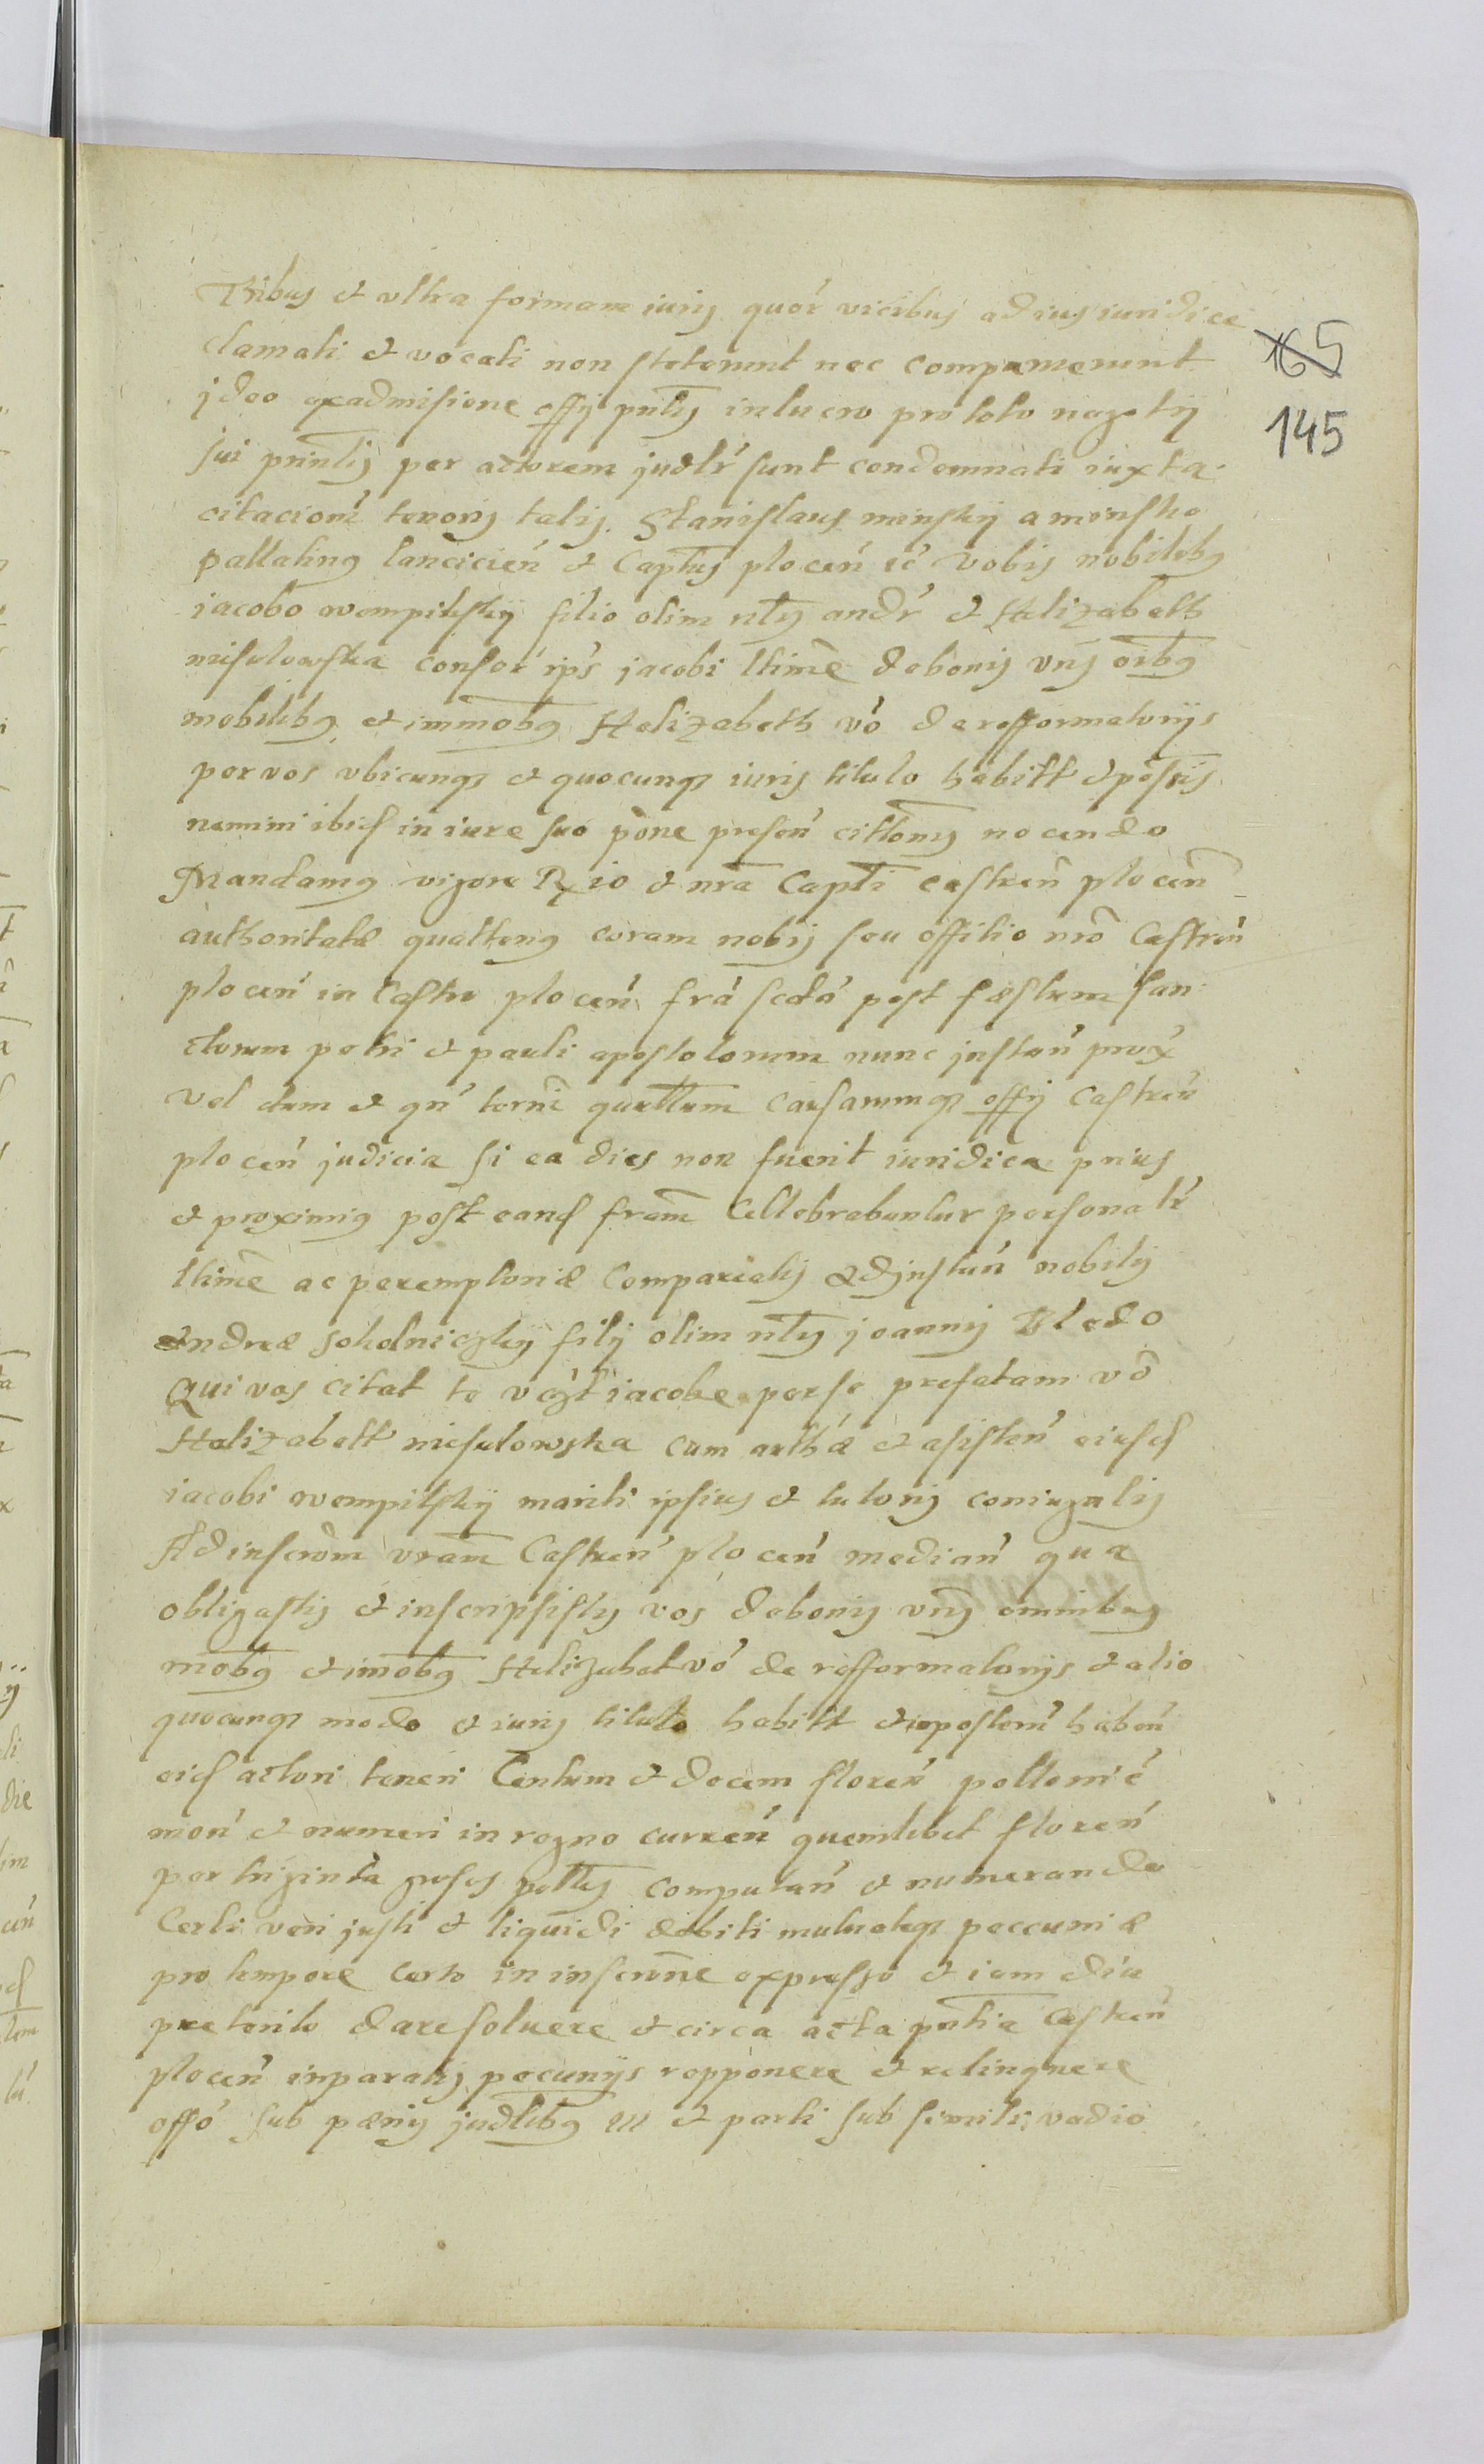 Tribus et vltra formam iuris quor' vicibus ad ius iuridice
clamati et vocati non steterunt nec comparuerunt
jdeo ex admisione offy pntis in lucro pro toto negotij
sui prinlis per actorem judlr' sunt condemnati iuxta
citaciom' tenoris talis. Stanislaus minskij a minsko
pallatinus lancicien' et Captus plocen' ec' vobis nobilibus
iacobo wempilskij filio olim nlis andr' et Helizabeth
misulowska consor' ips' jacobi ltime de bonis vris oibus
mobilibus et immobus Helizabeth vo' de refformatorijs
per vos vbicunq3 et quocunq3 iuris titulo habitt et possis
nemini ibid in iure suo pone presen' cittonis nocendo
Mandamus vigore Rx io et nra Capti castren' plocen'
authoritate quattenus coram nobis seu offitio nro Castren'
plocen' in Castro plocen' fra' scda' post festum san-
ctorum petri et pauli apostolorum nunc jnstan' prox'
vel dum et qn' termi querellarum causarumq3 offy Castren'
plocen' judicia si ea dies non fuerit iuridica prius
et proximius post eand fram Cellebrabuntur personalr'
ltime ac peremptorie Comparealis ad jnstan' nobilis
Andree sokolniczkij filij olim nlis joannis
Qui vos citat te iacobe per se prefatam vo
Helizabett misulowska cum auth'e et asisten' eiusd
iacobi wempilskij mariti ipsius et tutoris coniugalis
Ad inscrom vram Castren' plocen' median' qua
obligastis et inscripsistis vos de bonis vris omnibus
mobus et imobus Helizabet vo' de refformatorijs et alio
quocunq3 modo et iuris titulo habitt et inposterum' haben'
eid actori teneri Centum et decem floren' pollonic'
mon' et numeri in regno curren' quemlibet floren'
per triginta grosos poltis computan' et numerando
Certi veri justi et liquidi debiti mutueleq3 peccuniae
pro tempore certo in inscrone expresso et iam diu
preterito dare soluere et circa acta pntia Castren'
plocen' in paratis pecunijs repponere et relinquere
offo' sub paenis judlibus III et parti sub simili vadio
165
145